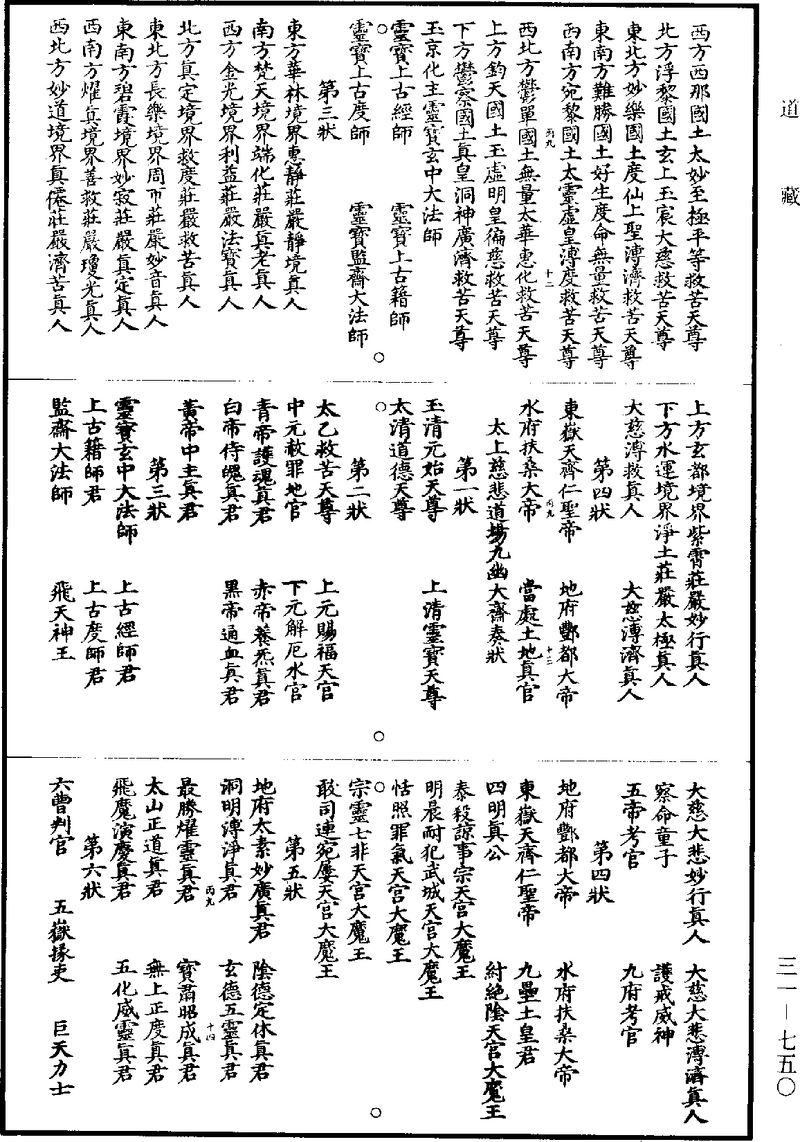 道藏
三一—七五〇
西方西那國土太妙至極平等救苦天尊
北方浮黎國土玄上玉宸大慈救苦天尊
東北方妙樂國土度仙上聖溥濟救苦天尊
東南方難勝國土好生度命無量救苦天尊
西南方宛黎國土太靈虛皇溥度救苦天尊
丙九 十二
西北方鬱單國土無量太華惠化救苦天尊
上方釣天國土玉虛明皇徧慈救苦天尊
下方鬱察國土真皇洞神廣濟救苦天尊
玉京化主靈寶玄中大法師
靈寶上古經師 靈寶上古籍師
靈寶上古度師 靈寶監齋大法師
第三狀
東方華林境界惠靜莊嚴靜境真人
南方梵天境界端化莊嚴真老真人
西方金光境界利益莊嚴法寶真人
北方真定境界救度莊嚴救苦真人
東北方長樂境界周帀莊嚴妙音真人
東南方碧霞境界妙寂莊嚴真定真人
西南方燿真境界善救莊嚴瓊光真人
西北方妙道境界真僊莊嚴濟苦真人
上方玄都境界紫霄莊嚴妙行真人
下方水運境界淨土莊嚴太極真人
大慈溥救真人 大慈溥濟真人
第四狀
東嶽天齊仁聖帝 地府酆都大帝
丙九 十三
水府扶桑大帝 當處土地真官
太上慈悲道場九幽大齋奏狀
第一狀
玉清元始天尊 上清靈寶天尊
太清道德天尊
第二狀
太乙救苦天尊 上元賜福天官
中元赦罪地官 下元解厄水官
青帝護魂真君 赤帝養炁真君
白帝侍魄真君 黑帝通血真君
黃帝中主真君
第三狀
靈寶玄中大法師 上古經師君
上古籍師君 上古度師君
監齋大法師 飛天神王
大慈大悲妙行真人 大慈大悲溥濟真人
察命童子 護戒威神
五帝考官 九府考官
第四狀
地府酆都大帝 水府扶桑大帝
東嶽天齊仁聖帝 九壘土皇君
四明真公 紂絕陰天宮大魔王
泰殺諒事宗天宮大魔王
明晨耐犯武城天宮大魔王
恬照罪氣天宮大魔王
宗靈七非天宮大魔王
敢司連宛屢天宮大魔王
第五狀
地府太素妙廣真君 陰德定休真君
洞明溥淨真君 玄德五靈真君
丙九 十四
最勝燿靈真君 寶肅昭成真君
太山正道真君 無上正度真君
飛魔演慶真君 五化威靈真君
第六狀
六曹判官 五嶽掾吏 巨天力士